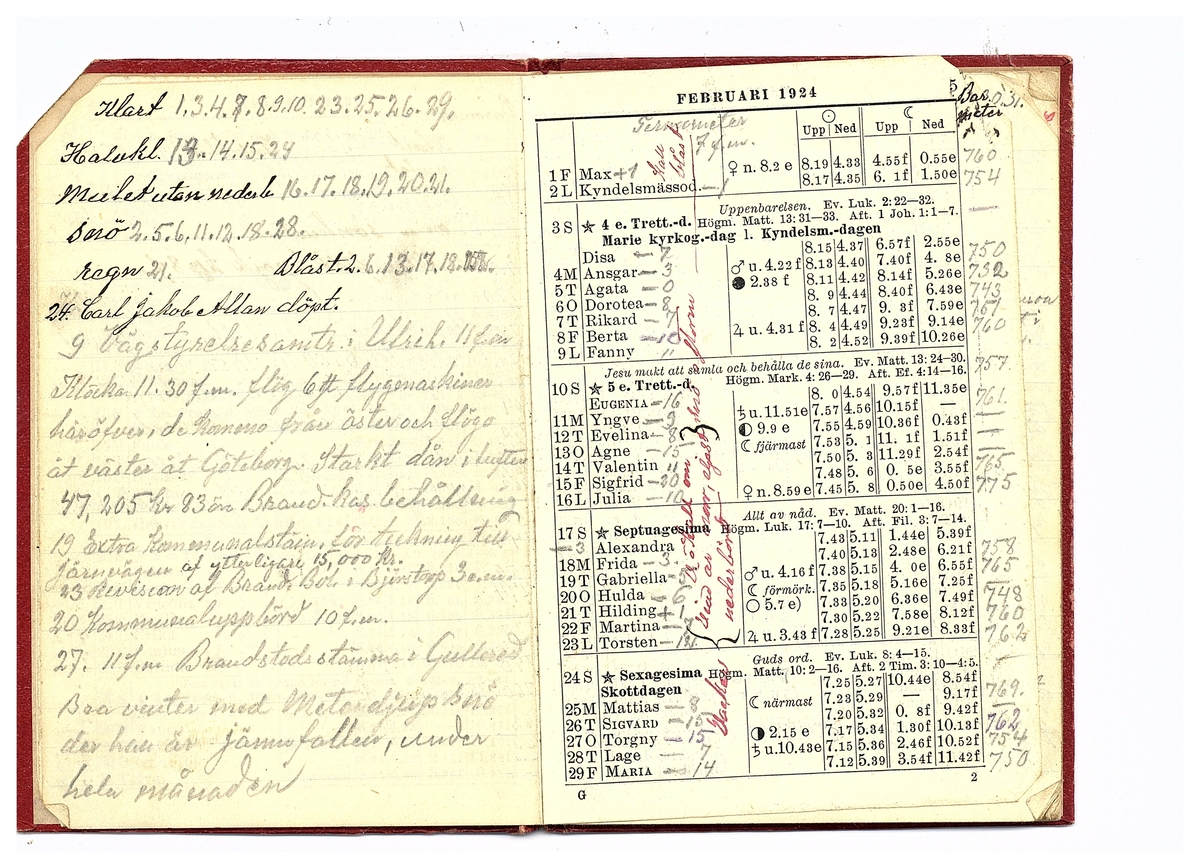 Klart 1.3.4.7.8.9.10.23.25.26.29.
Halvkl. 13.14.15.24
Mulet utan nederb 16.17.18.19.20.21.
Snö 2.5.6.11.12.18.28.
regn 21. Blåst. 2.6.13.17.18.
24. Carl Jakob Allan döpt.
9 Vägstyrelsesamtr. i Ulrih. 11 f.m
Klocka 11.30 f.m. flög 6 tt flygmaskiner
häröfver, de kommo från öster och flögo
åt väster åt Göteborg. Starkt dån i luften
47,205 Kr 83 öre Brand.kas. behållning
19 Extra Kommunalstäm. för teckning till
järnvägen af ytterligare 15,000 Kr.
23 Revision af Brand. Bol. i Björstorp 3 e.m.
20 Kommunaluppbörd 10 f.m.
27. 11 f.m Brandstodsstämma i Gullered
Bra vinter med Meterdjup snö
der han är jämnfallen, under
hela månaden
FEBRUARI 1924 5
Termometer
7 f.m.
Barometer
☉ ☾
Upp Ned Upp Ned
1 F Max +1 ♀ n. 8.2 e 8.19 4.33 4.55f 0.55e 760
2 L Kyndelsmässod. 8.17 4.35 6. 1f 1.50e 754
Uppenbarelsen. Ev. Luk. 2: 22—32.
3 S ★ 4 e. Trett.-d. Högm. Matt. 13: 31—33. Aft. 1 Joh. 1: 1—7.
Marie kyrkog.-dag l. Kyndelsm.-dagen
Disa — 7 8.15 4.37 6.57f 2.55e
4 M Ansgar — 3 ♂ u. 4.22 f 8.13 4.40 7.40f 4. 8e 750
5 T Agata — 0 ● 2.38 f 8.11 4.42 8.14f 5.26e 732
6 O Dorotea — 8 8. 9 4.44 8.40f 6.43e 743
7 T Rikard — 7 8. 7 4.47 9. 3f 7.59e 767
8 F Berta — 10 ♃ u. 4.31 f 8. 4 4.49 9.23f 9.14e 760
9 L Fanny 〃 8. 2 4.52 9.39f 10.26e
Jesu makt att samla och behålla de sina. Ev. Matt. 13: 24-30.
10 S ★ 5 e. Trett.-d. Högm. Mark. 4: 26—29. Aft. Ef. 4: 14—16. 757
Eugenia — 16 8. 0 4.54 9.57f 11.35e
11 M Yngve — 9 ♄ u. 11.51e 7.57 4.56 10.15f — 761.
12 T Evelina — 8 ◐ 9.9 e 7.55 4.59 10.36f 0.43f
13 O Agne — 15 ☾ fjärmast 7.53 5. 1 11. 1f 1.51f
14 T Valentin 〃 7.50 5. 3 11.29f 2.54f
15 F Sigfrid — 20 7.48 5. 6 0. 5e 3.55f 765
16 L Julia — 10 ♀ n. 8.59 e 7.45 5. 8 0.50e 4.50f 775
Allt av nåd. Ev. Matt. 20: 1—16.
17 S ★ Septuagesima Högm. Luk. 17: 7—10. Aft. Fil. 3: 7—14.
— 3 Alexandra 7.43 5.11 1.44e 5.39f
18 M Frida — 3. 7.40 5.13 2.48e 6.21f 758
19 T Gabriella ♂ u. 4.16 f 7.38 5.15 4. 0e 6.55f 765
20 O Hulda — 6 ☾ förmörk. 7.35 5.18 5.16e 7.25f
21 T Hilding + 1 ○ 5.7 e) 7.33 5.20 6.36e 7.49f 748
22 F Martina 7.30 5.22 7.58e 8.12f 760
23 L Torsten — 12 ♃ u. 3.43 f 7.28 5.25 9.21e 8.33f 762
Guds ord. Ev. Luk. 8: 4—15.
24 S ★ Sexagesima Högm. Matt. 10: 2—16. Aft. 2 Tim. 3: 10—4: 5.
Skottdagen 7.25 5.27 10.44e 8.54f
25 M Mattias — 8 ☾ närmast 7.23 5.29 — 9.17f 769.
26 T Sigvard — 15 7.20 5.32 0. 8f 9.42f
27 O Torgny — 15 ◑ 2.15 e 7.17 5.34 1.30f 10.13f 762
28 T Lage — 7 ♄ u. 10.43e 7.15 5.36 2.46f 10.52f 754
29 F Maria — 14 7.12 5.39 3.54f 11.42f 750
G 2